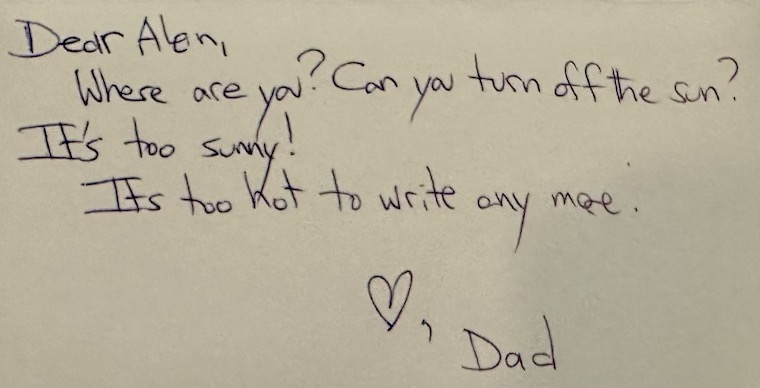 Dear Alan,
Where are you? Can you turn off the sun?
It's too sunny!
It's too hot to write any more.
♡, Dad